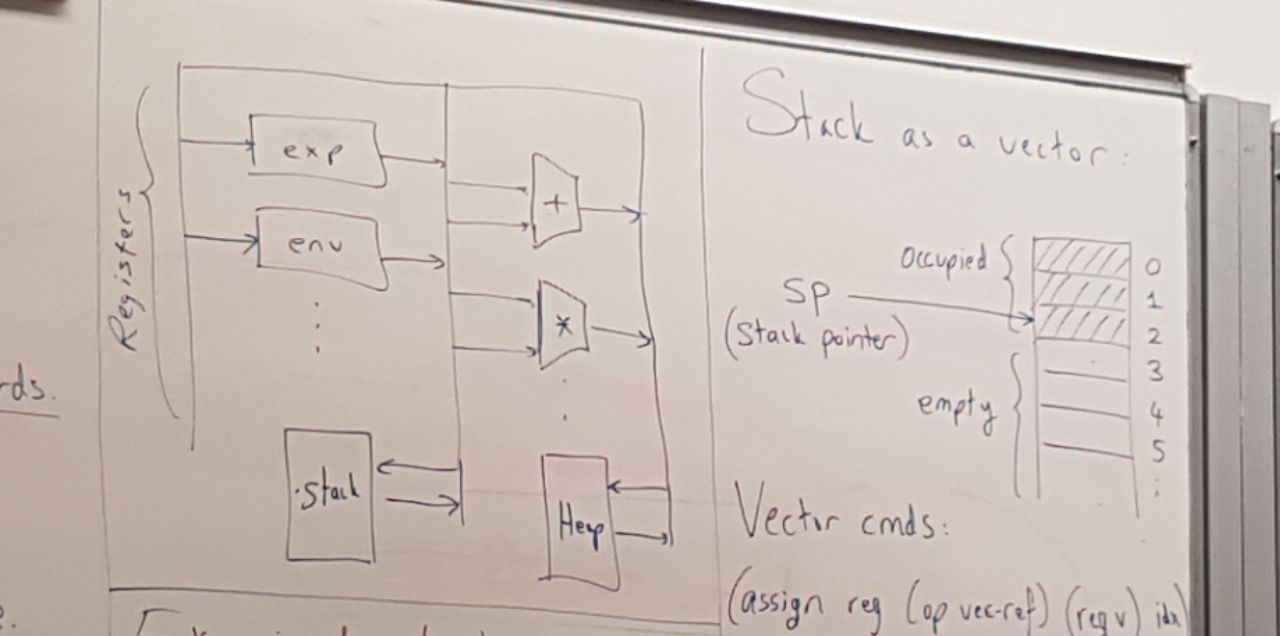 rds.
Registers
exp
env
+
*
Stack
Heap
Stack as a vector:
occupied
SP
(Stack pointer)
empty
0
1
2
3
4
5
Vector cmds:
(assign reg (op vec-ref) (reg v) idx)